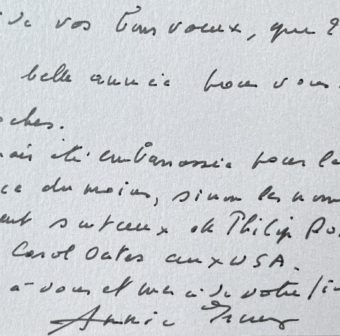 de vos bons voeux, que 2
belle année pour vous
oches.
ais été embarrassée pour la
ce du moins, sinon les nom
ent surtout ceux de Philip Ro
Carol Oates aux USA.
à vous et merci de votre fi
Annie Ernaux